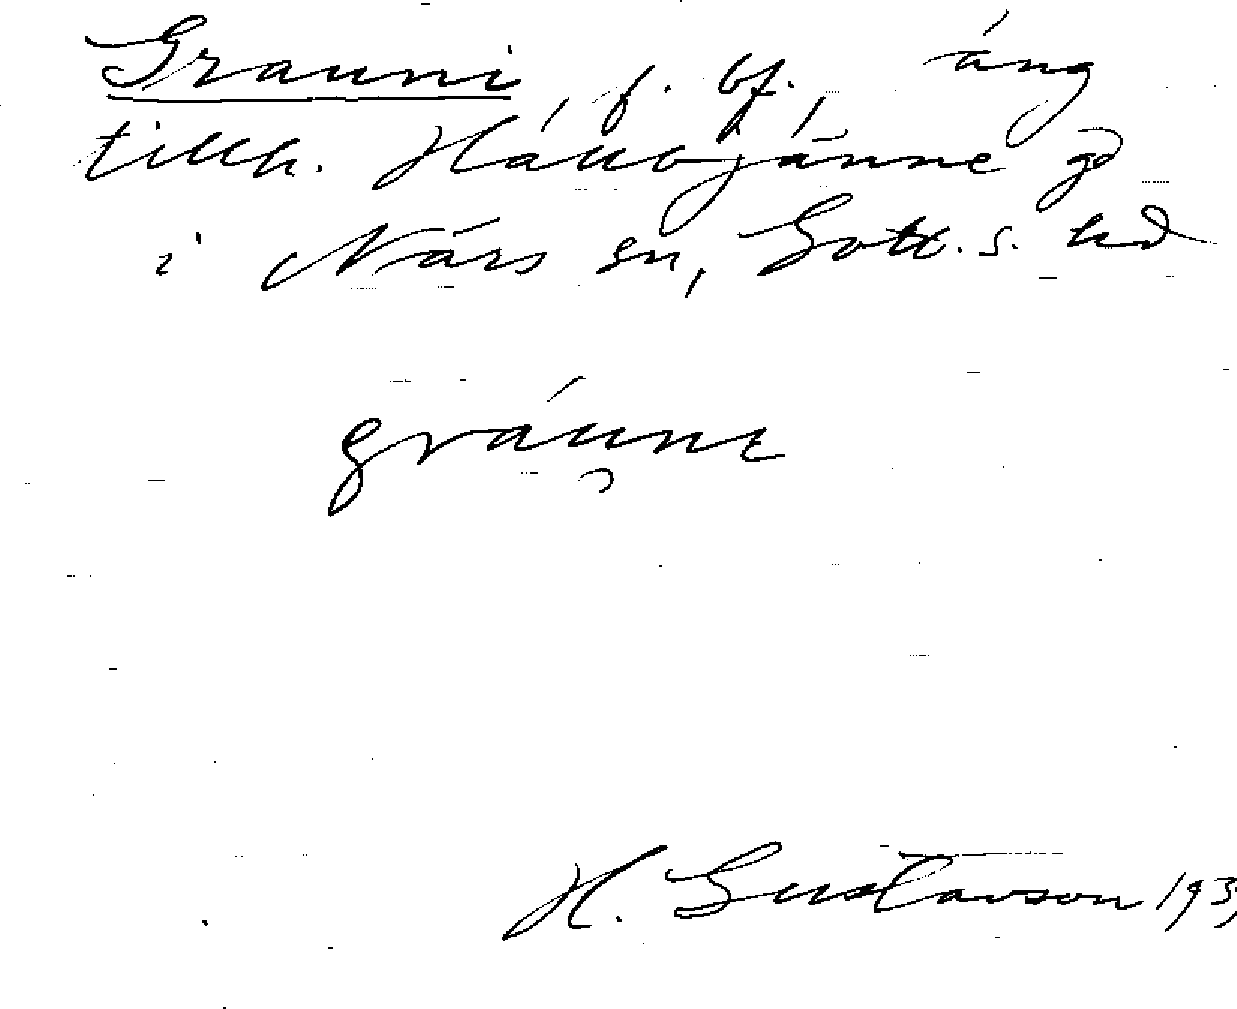 Grauni, f. bf., äng
tillh. Hallbjänne gd
i Närs sn, Gotl. s. hd
gráune
H. Gustavson 193